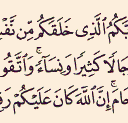 بَّكُمُ ٱلَّذِى خَلَقَكُم مِّن نَّفْ
جَالًا كَثِيرًا وَنِسَآءً ۚ وَٱتَّقُوا
حَامَ ۚ إِنَّ ٱللَّهَ كَانَ عَلَيْكُمْ رَقِ